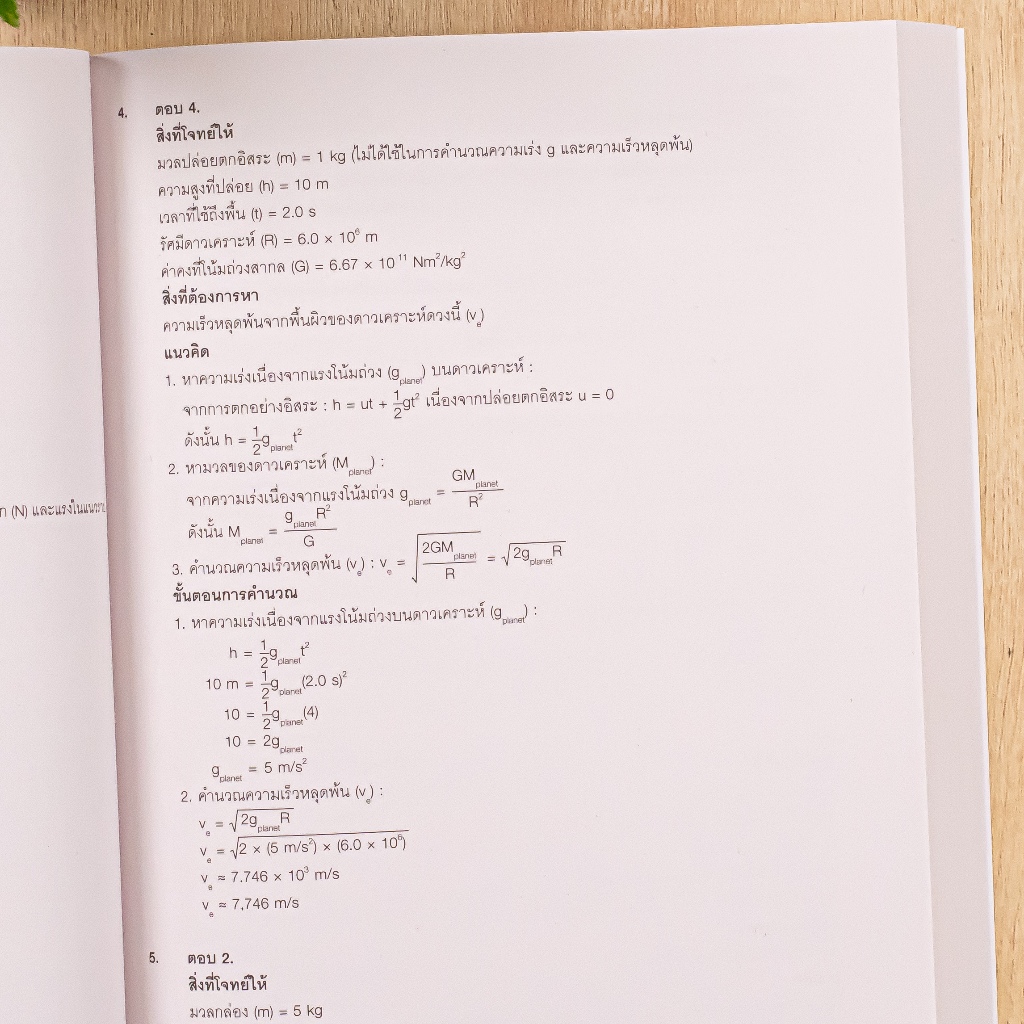 4. ตอบ 4.
สิ่งที่โจทย์ให้
มวลปล่อยตกอิสระ (m) = 1 kg (ไม่ได้ใช้ในการคำนวณความเร่ง g และความเร็วหลุดพ้น)
ความสูงที่ปล่อย (h) = 10 m
เวลาที่ใช้ถึงพื้น (t) = 2.0 s
รัศมีดาวเคราะห์ (R) = 6.0 × 10⁶ m
ค่าคงที่โน้มถ่วงสากล (G) = 6.67 × 10 ¹¹ Nm²/kg²
สิ่งที่ต้องการหา
ความเร็วหลุดพ้นจากพื้นผิวของดาวเคราะห์ดวงนี้ (v_e)
แนวคิด
1. หาความเร่งเนื่องจากแรงโน้มถ่วง (g_planet) บนดาวเคราะห์ :
จากการตกอย่างอิสระ : h = ut + 1/2 gt² เนื่องจากปล่อยตกอิสระ u = 0
ดังนั้น h = 1/2 g_planet t²
2. หามวลของดาวเคราะห์ (M_planet) :
จากความเร่งเนื่องจากแรงโน้มถ่วง g_planet = GM_planet/R²
ดังนั้น M_planet = g_planet R²/G
3. คำนวณความเร็วหลุดพ้น (v_e) : v_e = √(2GM_planet/R) = √(2g_planet R)
ขั้นตอนการคำนวณ
1. หาความเร่งเนื่องจากแรงโน้มถ่วงบนดาวเคราะห์ (g_planet) :
h = 1/2 g_planet t²
10 m = 1/2 g_planet (2.0 s)²
10 = 1/2 g_planet (4)
10 = 2g_planet
g_planet = 5 m/s²
2. คำนวณความเร็วหลุดพ้น (v_e) :
v_e = √(2g_planet R)
v_e = √(2 × (5 m/s²) × (6.0 × 10⁶))
v_e ≈ 7.746 × 10³ m/s
v_e ≈ 7,746 m/s
5. ตอบ 2.
สิ่งที่โจทย์ให้
มวลกล่อง (m) = 5 kg
(N) และแรงในแนว